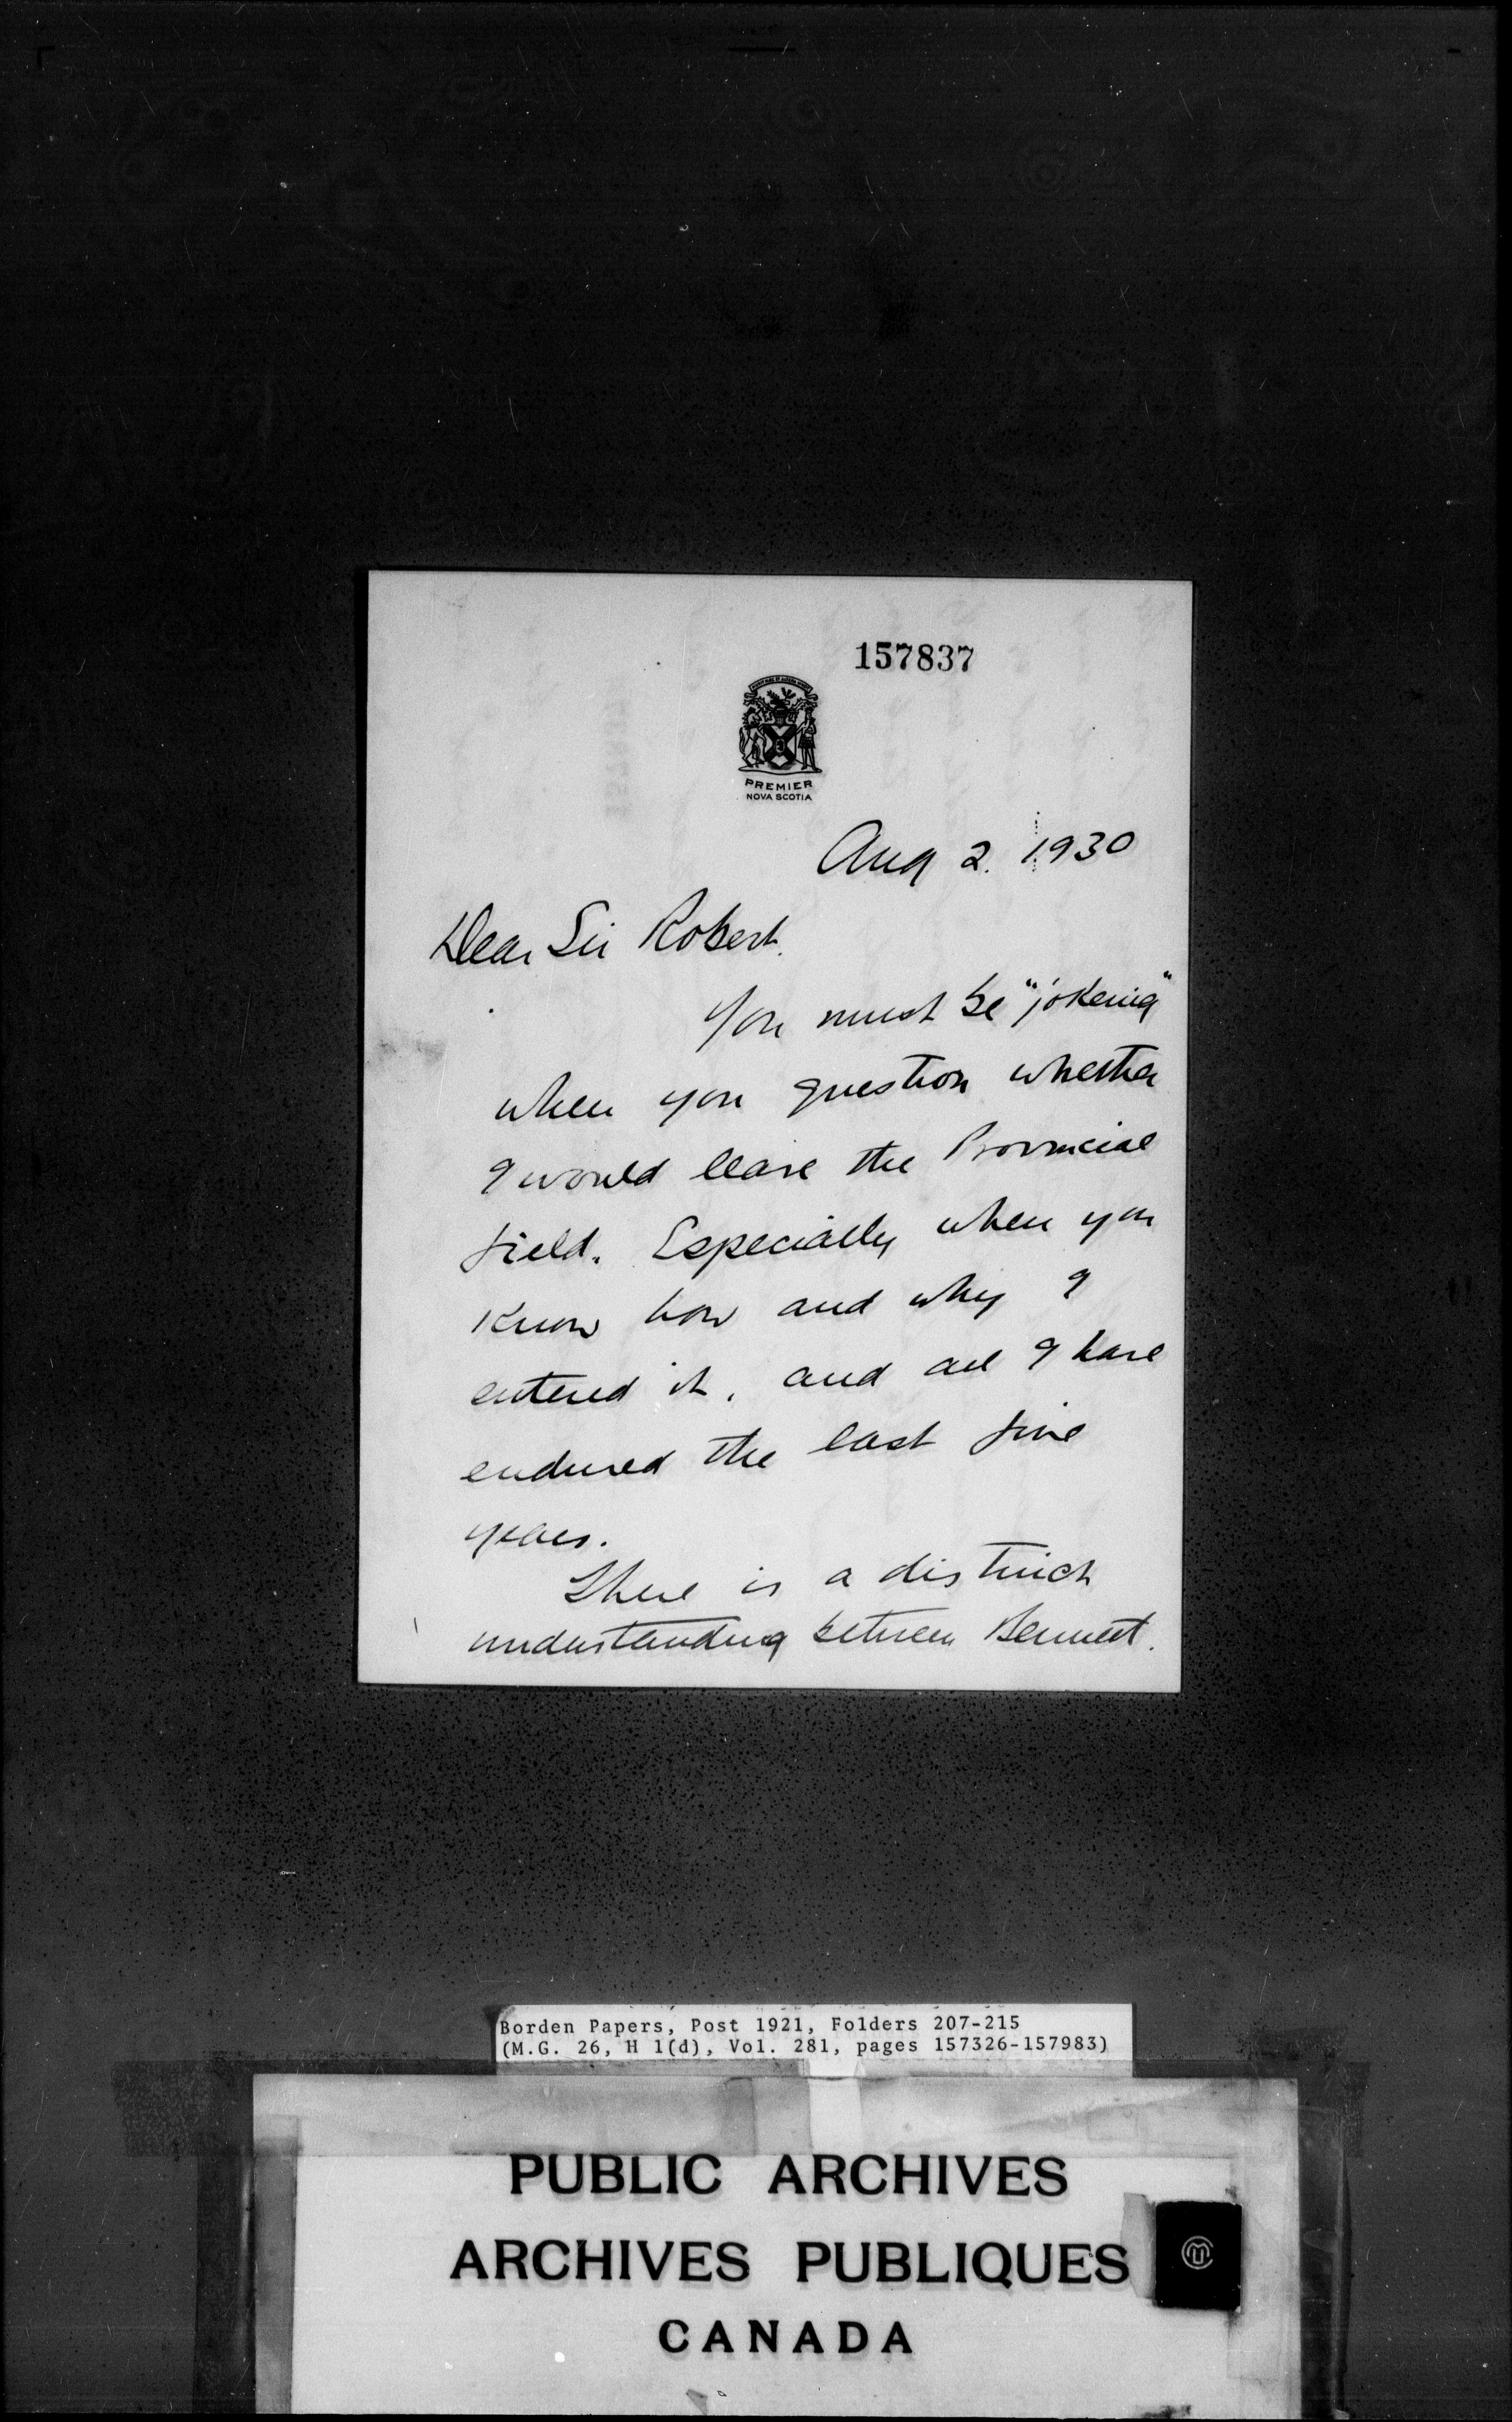 157837
PREMIER
NOVA SCOTIA
Aug 2. 1930
Dear Sir Robert.
You must be "jokeing"
when you question whether
I would leave the Provincial
field. Especially when you
know how and why I
entered it, and all I have
endured the last five
years.
There is a distinct
understanding between Bennett.
Borden Papers, Post 1921, Folders 207-215
(M.G. 26, H 1(d), Vol. 281, pages 157326-157983)
PUBLIC ARCHIVES
ARCHIVES PUBLIQUES
CANADA